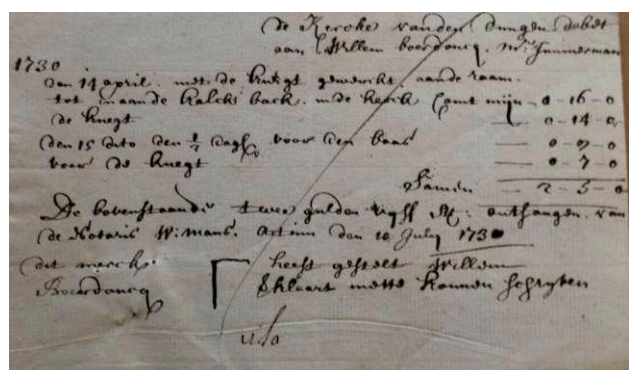 de Kercke vanden Dungen debet
aan Willem boerdoncq. Mr. Timmerman
1730
den 14 april. met de knegt gewerckt. aende raam.
tot inaande kalck back. inde kerck comt mijn - 0-16-0
de knegt - 0-14-0
den 15 dito den ½ dagh voor den baas - 0-8-0
voor de knegt - 0-7-0
Samen - 2-5-0
De bovenstaande twee gulden vyff st: ontfangen van
de Notaris W: Mans. Actum den 10 July 1730
dit merck heeft gestelt Willem
Boerdoncq verclaert niette konnen schryven